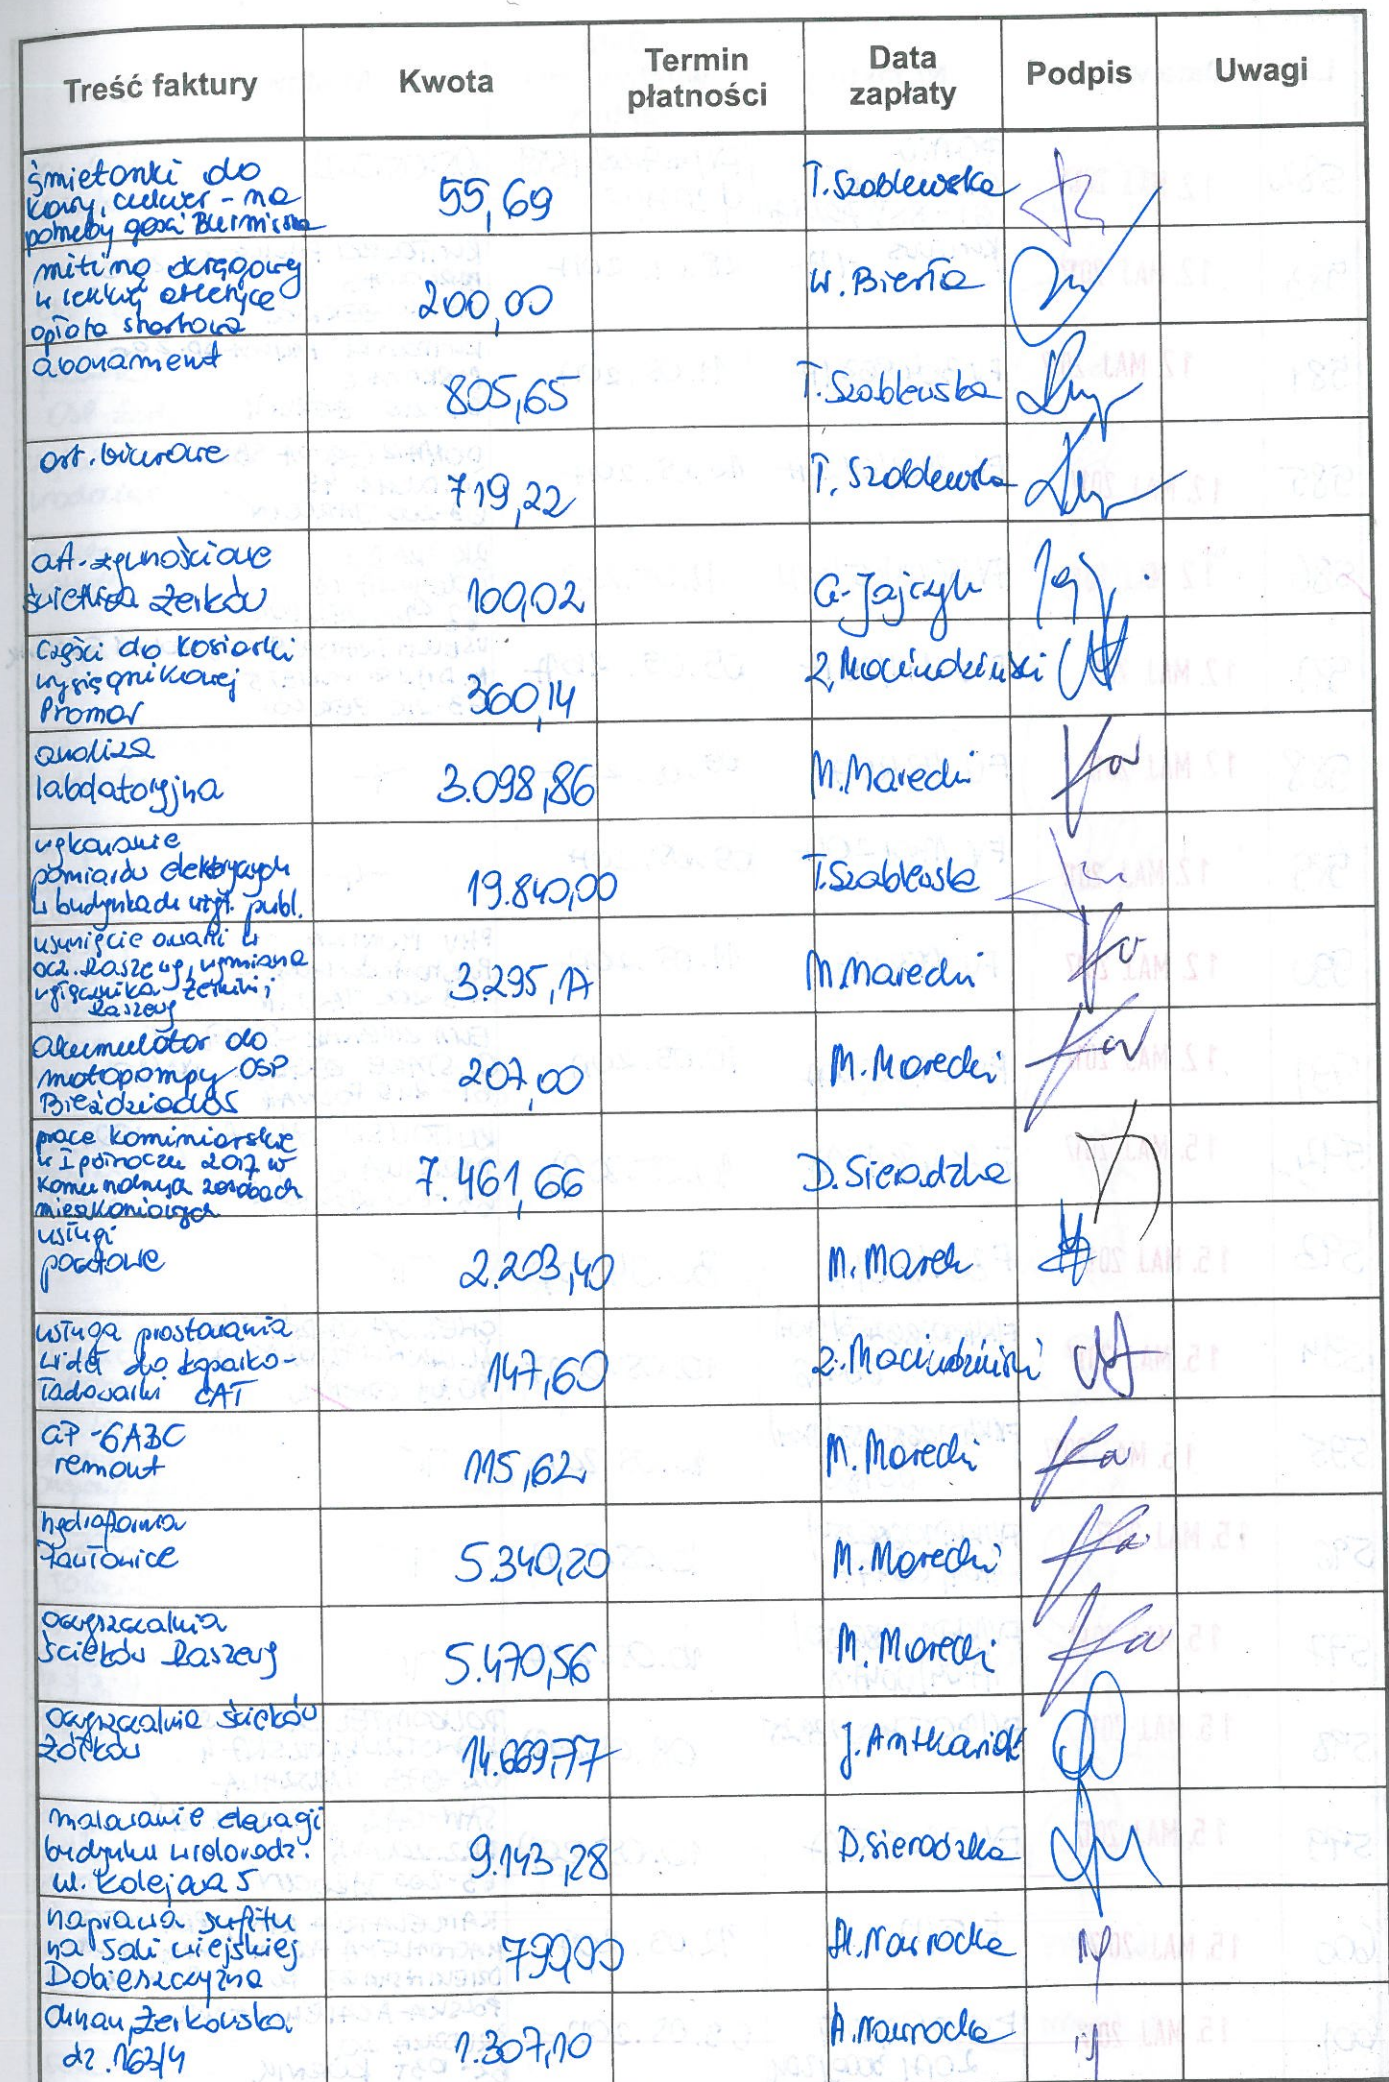 Treść faktury Kwota Termin płatności Data zapłaty Podpis Uwagi
śmietanki do
kawy, cukier - na
potrzeby gości Burmistrza
55,69 T. Szablewska
miting okręgowy
w lekkiej atletyce
opłata startowa
200,00 W. Bierła
abonament
805,65 T. Szablewska
art. biurowe
719,22 T. Szablewska
art. żywnościowe
świetlica Żerków
100,02 G. Jajczyk
części do kosiarki
wysięgnikowej
Promar
360,14 Z. Maciudziński
analiza
laboratoryjna
3.098,86 M. Marecki
wykonanie
pomiarów elektrycznych
w budynkach użyt. publ.
19.840,00 T. Szablewska
usunięcie awarii w
ocz. Raszewy, wymiana
Raszewy
3.295,17 M. Marecki
akumulator do
motopompy OSP
Bieździadów
207,00 M. Marecki
prace kominiarskie
w I półroczu 2017 w
komunalnych zasobach
mieszkaniowych
7.461,66 D. Sieradzka
usługi
pocztowe
2.203,40 M. Marek
usługa prostowania
wideł do koparko-
ładowarki CAT
147,60 Z. Maciudziński
GP-6ABC
remont
115,62 M. Marecki
hydrofornia
Pawłowice
5.340,20 M. Marecki
oczyszczalnia
ścieków Raszewy
5.470,56 M. Marecki
oczyszczalnia ścieków
Żółków
14.669,77 J. Antkowiak
malowanie elewacji
budynku wielorodz.
ul. Kolejowa 5
9.143,28 D. Sieradzka
naprawa sufitu
na sali wiejskiej
Dobieszczyzna
799,00 A. Nawrocka
Chwał, Żerkowska
dz. 163/4
1.307,10 A. Nawrocka